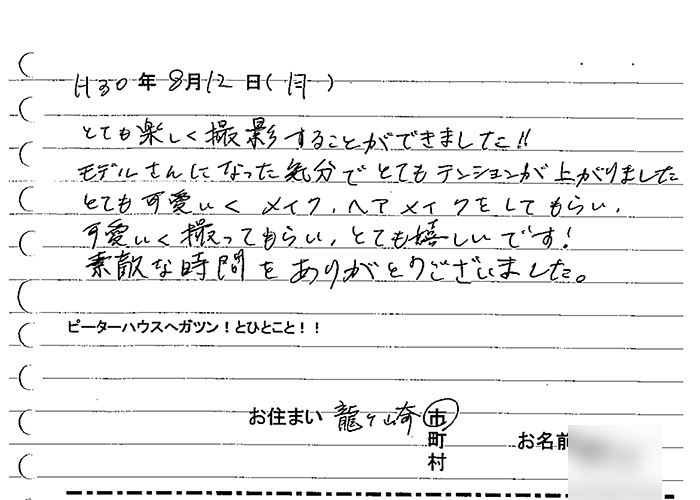 H30年8月12日(月)
とても楽しく撮影することができました!!
モデルさんになった気分でとてもテンションが上がりました
とても可愛いくメイク、ヘアメイクをしてもらい、
可愛いく撮ってもらい、とても嬉しいです!
素敵な時間をありがとうございました。
ピーターハウスへガツン!とひとこと!!
お住まい 龍ケ崎 市
町
村
お名前